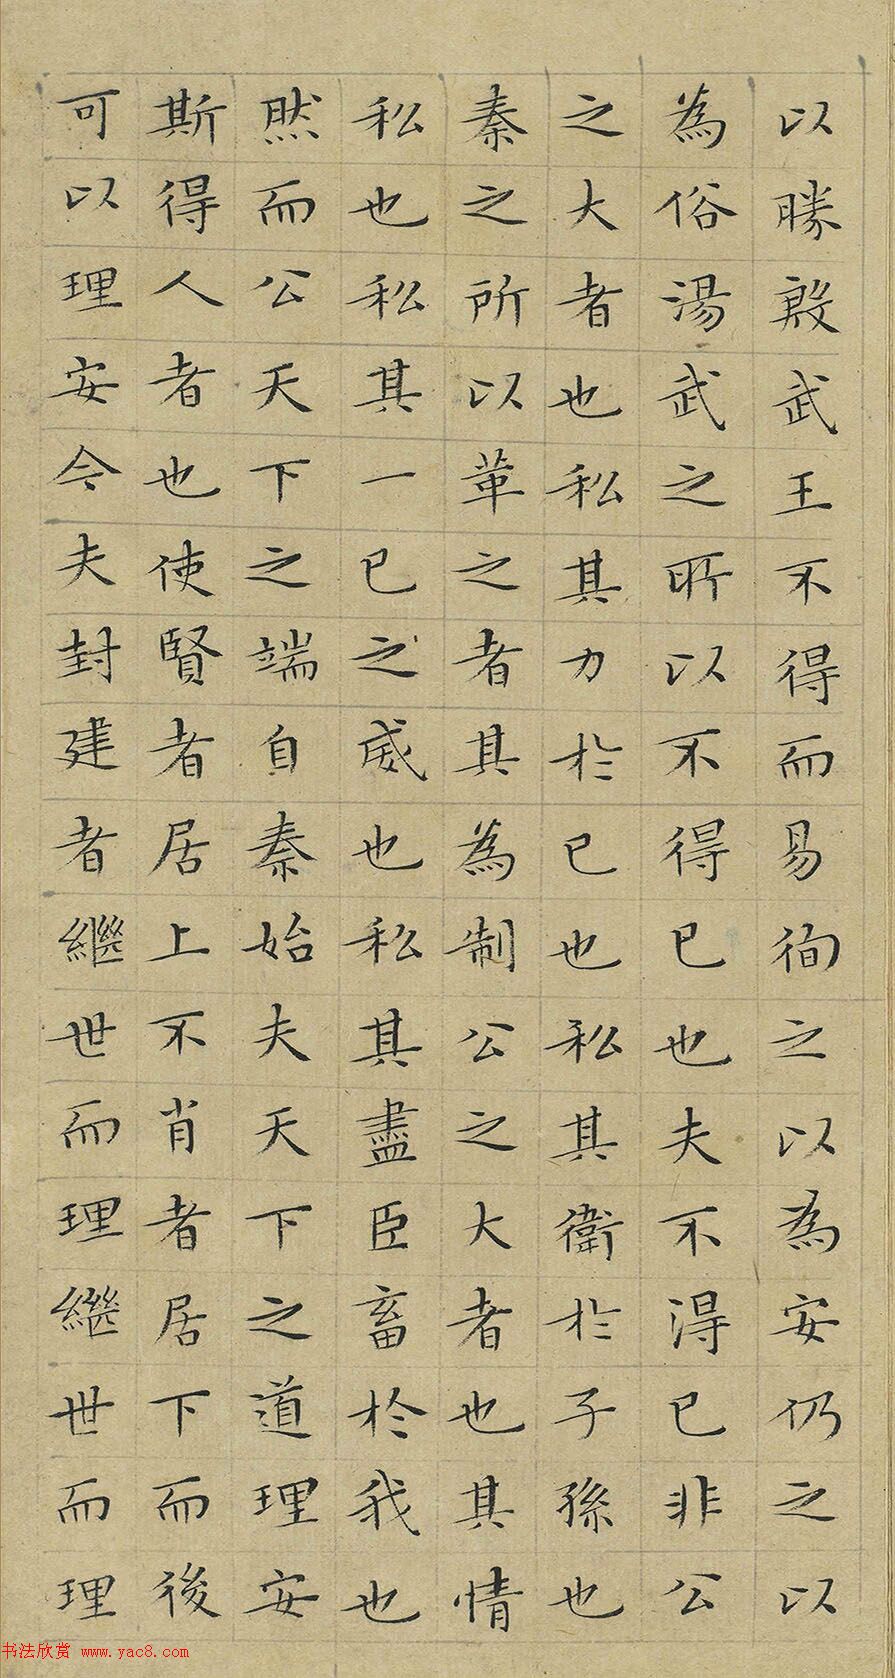 以勝殷武王不得而易徇之以為安仍之以
為俗湯武之所以不得已也夫不得已非公
之大者也私其力於已也私其衛於子孫也
秦之所以革之者其為制公之大者也其情
私也私其一已之威也私其盡臣畜於我也
然而公天下之端自秦始夫天下之道理安
斯得人者也使賢者居上不肖者居下而後
可以理安今夫封建者繼世而理繼世而理
书法欣赏 www.yac8.com